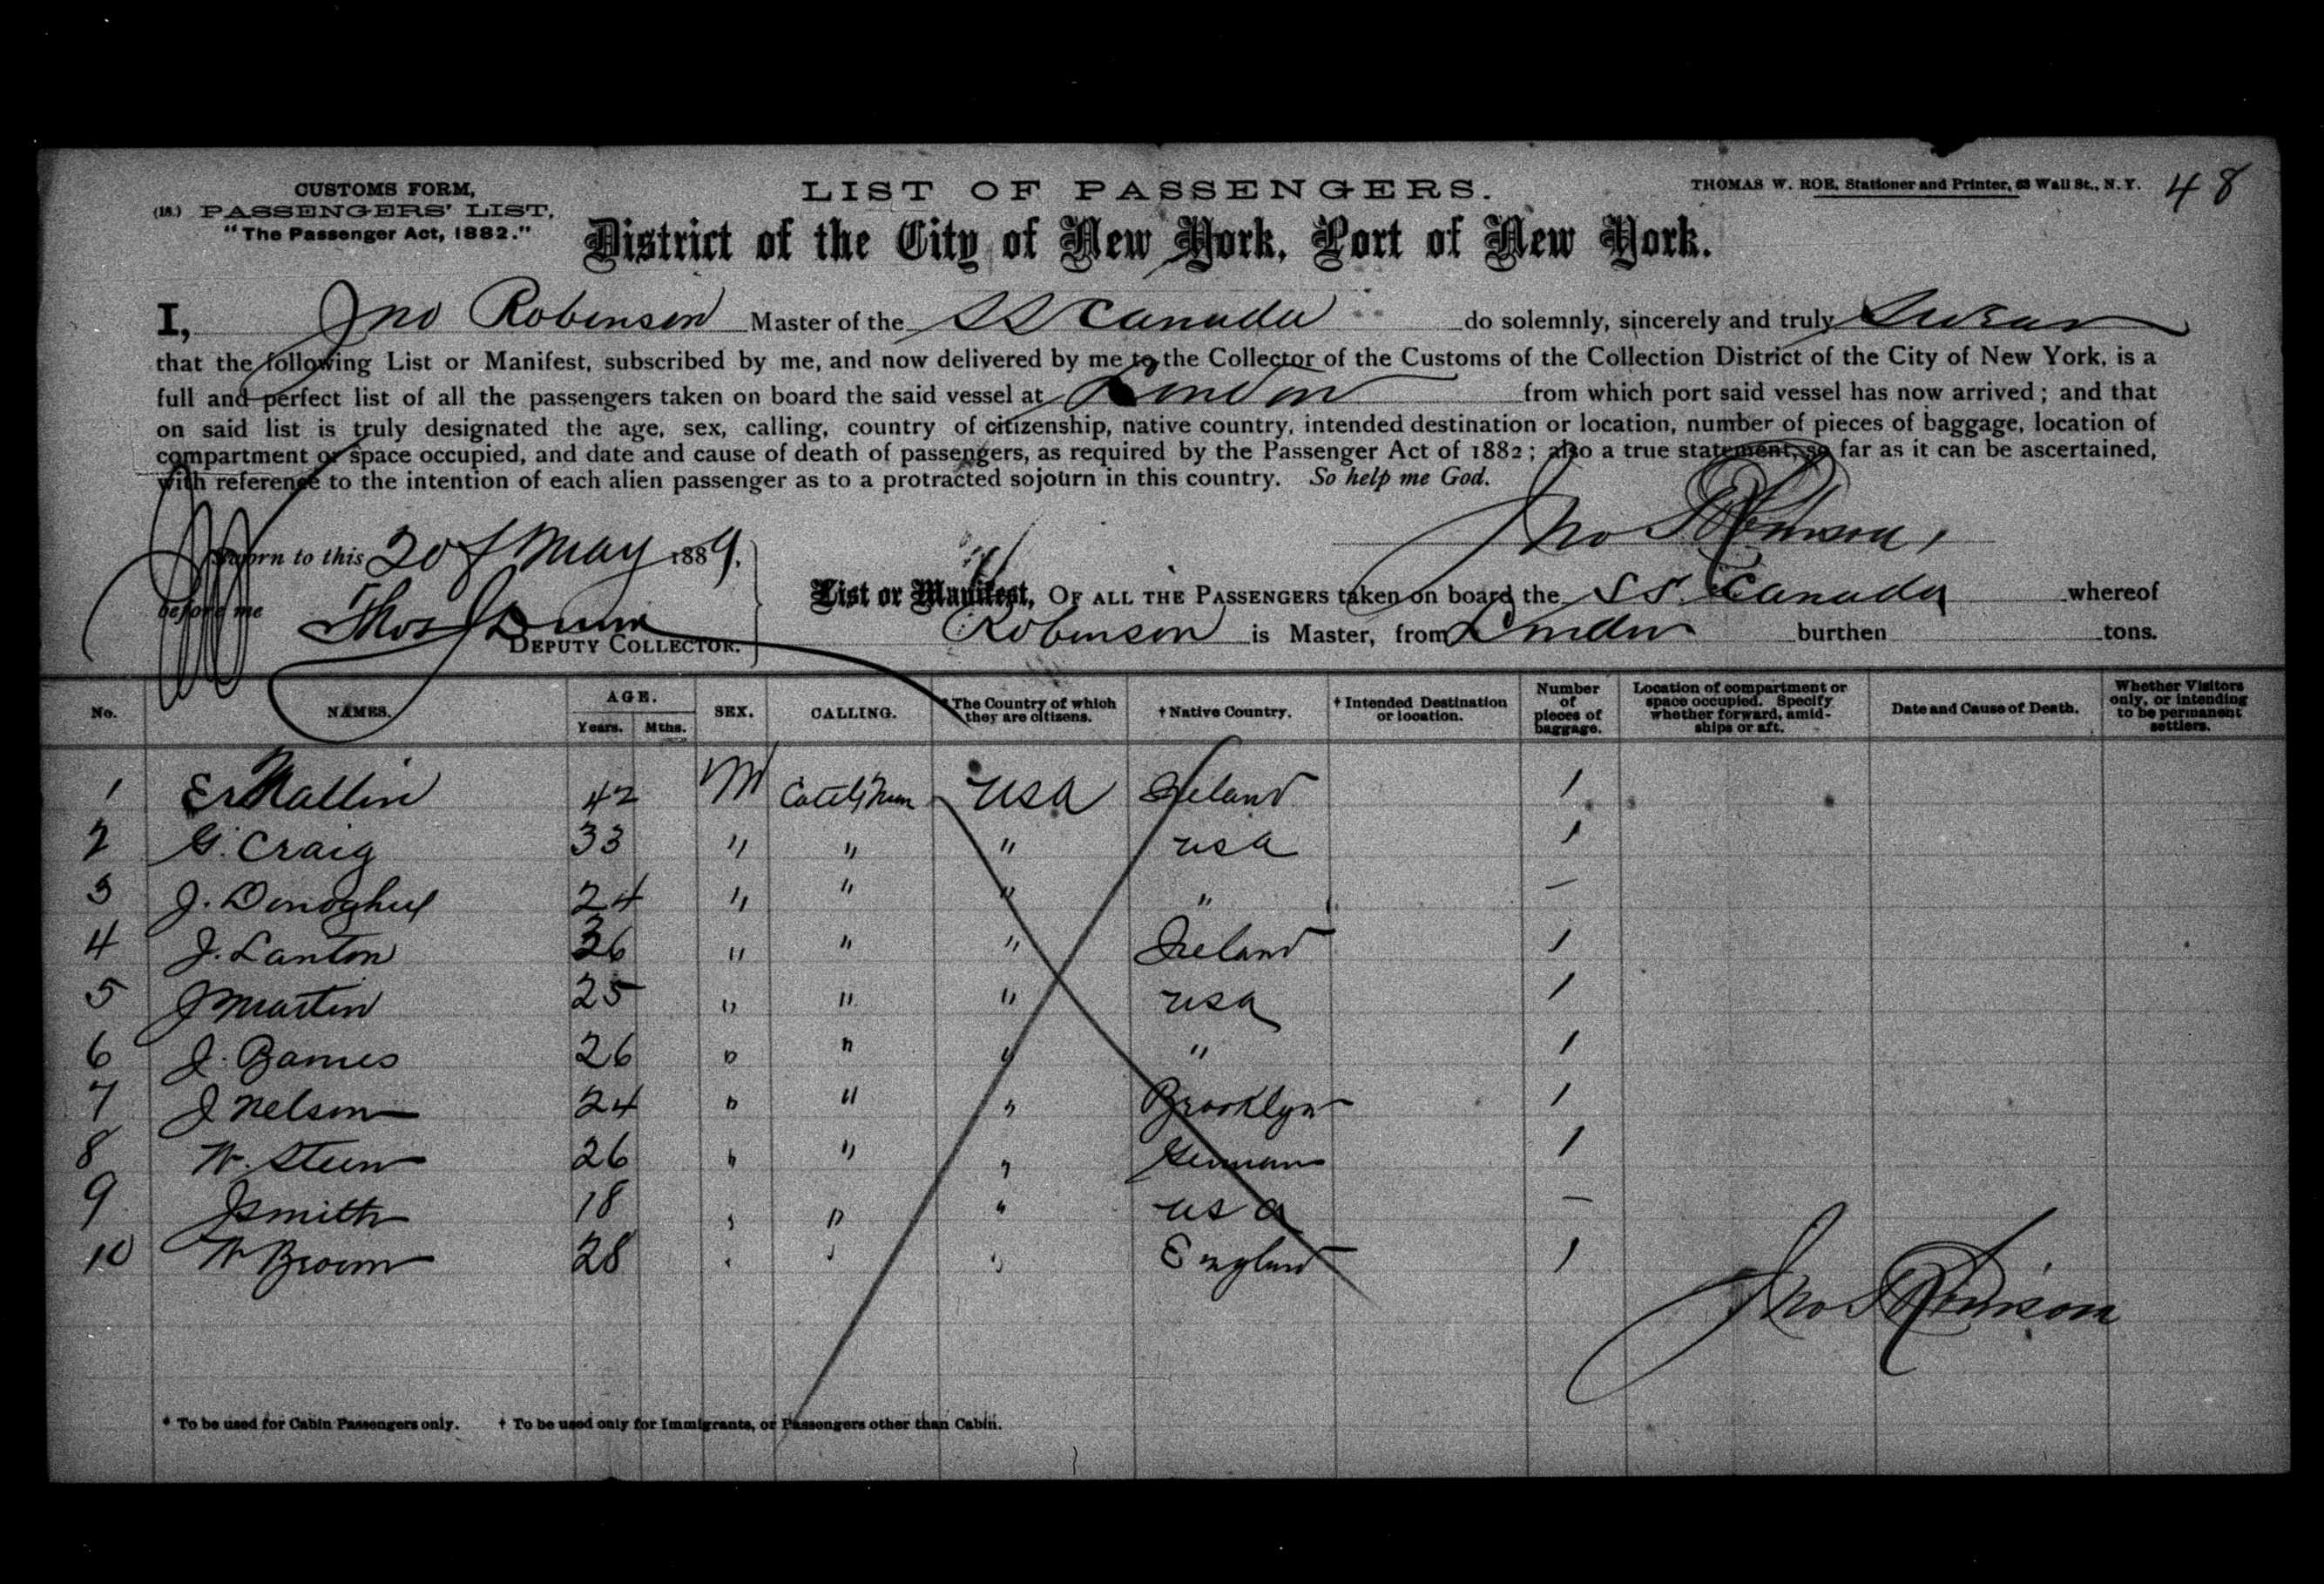 CUSTOMS FORM,
(18.) PASSENGERS' LIST,
"The Passenger Act, 1882."
LIST OF PASSENGERS.
THOMAS W. ROE, Stationer and Printer, 63 Wall St., N. Y. 48
District of the City of New York, Port of New York.
I, Jno Robinson Master of the SS Canada do solemnly, sincerely and truly Swear
that the following List or Manifest, subscribed by me, and now delivered by me to the Collector of the Customs of the Collection District of the City of New York, is a
full and perfect list of all the passengers taken on board the said vessel at London from which port said vessel has now arrived; and that
on said list is truly designated the age, sex, calling, country of citizenship, native country, intended destination or location, number of pieces of baggage, location of
compartment or space occupied, and date and cause of death of passengers, as required by the Passenger Act of 1882; also a true statement, so far as it can be ascertained,
with reference to the intention of each alien passenger as to a protracted sojourn in this country. So help me God.
Jno Robinson,
Sworn to this 20 of May 1889.
before me Thos Dunn
DEPUTY COLLECTOR.
List or Manifest, OF ALL THE PASSENGERS taken on board the S S. Canada whereof
Robinson is Master, from London burthen tons.
No. NAMES. AGE. Years. Mths. SEX. CALLING. * The Country of which they are citizens. † Native Country. † Intended Destination or location. Number of pieces of baggage. Location of compartment or space occupied. Specify whether forward, amidships or aft. Date and Cause of Death. Whether Visitors only, or intending to be permanent settlers.
1 42 M USA Ireland 1
2 G. Craig 33 " " " usa 1
3 J. Donoghue 24 " " " " —
4 J. Lanton 26 " " " Ireland 1
5 J Martin 25 " " " usa 1
6 J. Barnes 26 " " " " 1
7 J Nelson 24 " " " Brooklyn 1
8 W. Steen 26 " " " German 1
9 J Smith 18 " " " usa —
10 W Brown 28 " " " England 1
Jno Robinson
* To be used for Cabin Passengers only. † To be used only for Immigrants, or Passengers other than Cabin.